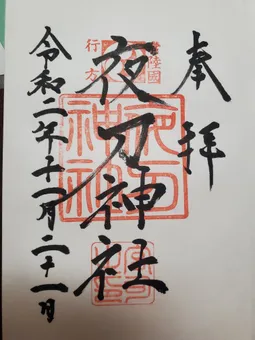 奉拝
常陸國
行方
夜刀神社
夜刀神社
令和二年十一月二十一日